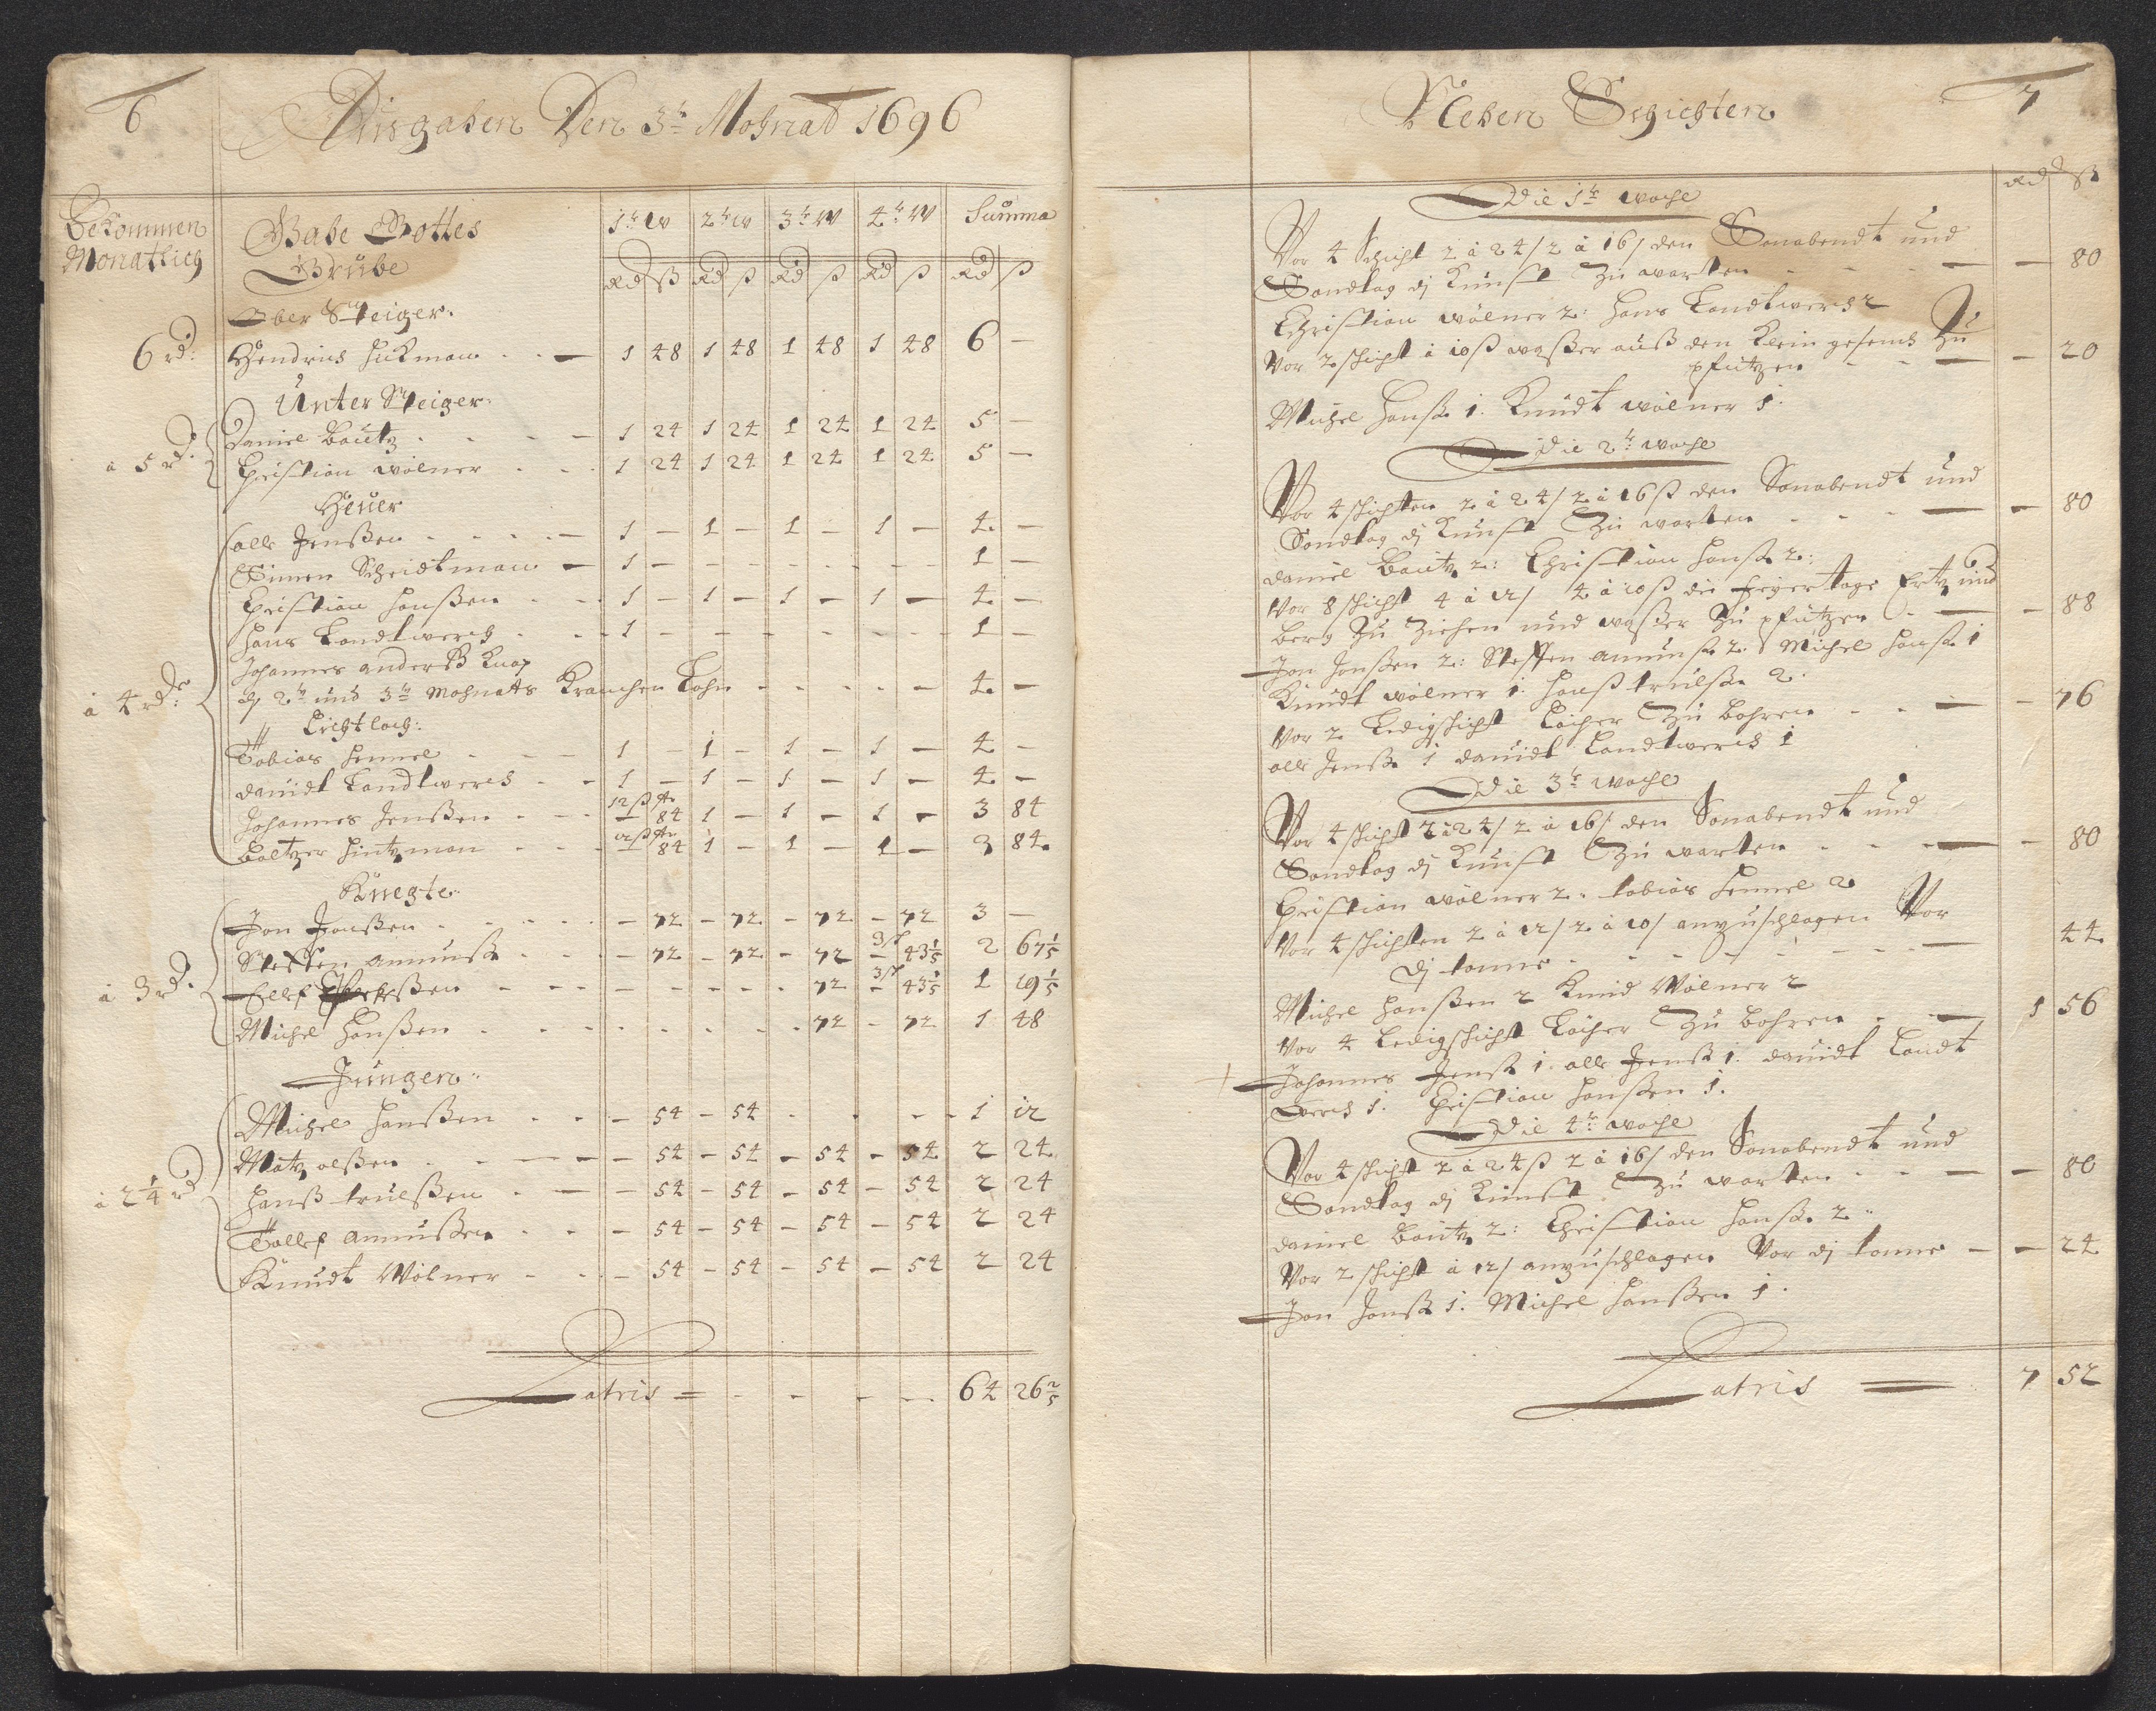 6
Ausgaben Den 3te Mohnat 1696
Bekommen Monatlich
Gabe Gottes Grube
1te W 2te W 3te W 4te W Summa
Rd ß Rd ß Rd ß Rd ß Rd ß
Ober Steiger.
6 rd: Hendrich Hickman - - 1 48 1 48 1 48 1 48 6 -
Unter Steiger.
à 5 rd.
Daniel Bautz - - - 1 24 1 24 1 24 1 24 5 -
Christian wölner - - 1 24 1 24 1 24 1 24 5 -
Heuer
à 4 rdr:
olle Jenßen - - - - 1 - 1 - 1 - 1 - 4 -
Simen Scheidtman - 1 - - - - - - - 1 -
Christian Hanßen - - 1 - 1 - 1 - 1 - 4 -
Hans Landtwerch - - 1 - - - - - - - 1 -
Johannes anderß Knap
dj 2te und 3te Mohnats Krancken Lohn - - - - - 4 -
Lichtloch:
Tobias Hemel - - - 1 - 1 - 1 - 1 - 4 -
dauidt Landtwerch - - 1 - 1 - 1 - 1 - 4 -
12 ß
Johannes Jenßen - - - - 84 1 - 1 - 1 - 3 84
12 ß
Baltzer Hintzman - - - - 84 1 - 1 - 1 - 3 84
Knegte.
à 3 rd.
Jon Jonßen - - - - - 72 - 72 - 72 - 72 3 -
Steffen amunß - - - - 72 - 72 - 72 - 43 1/5 2 67 1/5
Ellef - - - - - - - 72 - 43 1/5 1 19 1/5
Michel Hanßen - - - - - - - - 72 - 72 1 48
Jungen.
à 2 1/4 rd
Michel Hanßen - - - 54 - 54 - - - - 1 12
Matz olßen - - - - - 54 - 54 - 54 - 54 2 24
Hanß trulßen - - - 54 - 54 - 54 - 54 2 24
Tollef amunßen - - - 54 - 54 - 54 - 54 2 24
Knudt Wölner - - - 54 - 54 - 54 - 54 2 24
Latris = - - - - - 64 26 2/5
Neben Schichten
7
Rd ß
Die 1te woche
Vor 4 Schicht 2 à 24/ 2 à 16/ den Sonabendt und
Sondtag dj Kunst Zu warten - - - - - 80
Christian wölner 2: Hans Landtwerch 2
Vor 2 schicht à 10 ß waßer auß den Klein gesenck Zu
pfützen - - - - 20
Michel Hanß. 1. Knudt wölner 1.
Die 2te woche
Vor 4 schichten 2 à 24/ 2 à 16 ß den Sonabendt und
Sondtag dj Kunst Zu warten - - - - - 80
daniel Bautz 2: Christian Hanß. 2:
Vor 8 schicht 4 à 12/ 4 à 10 ß die feyertage Ertz und
berg Zu Ziehen und waßer Zu pfützen - - - 88
Jon Jonßen 2: Steffen amunß. 2: Michel Hanß. 1
Knudt wölner 1. Hanß trulß. 2.
Vor 2 Ledigschicht Löcher Zu bohren - - - - 76
olle Jenß. 1 dauidt Landtwerch 1
Die 3te woche
Vor 4 schicht 2 à 24/ 2 à 16/ den Sonabendt und
Sondtag dj Kunst Zu warten - - - - - 80
Christian wölner 2. tobias Hemel 2
Vor 4 schichten 2 à 12/ 2 à 10/ anzuschlagen Vor
dj tonne - - - - - - - - 44
Michel Hanßen 2 Knud Wölner 2
Vor 4 Ledigschicht Löcher Zu bohren - - 1 56
Johannes Jenß 1. olle Jenß 1. dauidt Landt
werch 1. Christian Hanßen 1.
Die 4te woche
Vor 4 schicht 2 à 24 ß 2 à 16/ den Sonabendt und
Sondtag dj Kunst Zu warten - - - - 80
daniel Bautz 2: Christian Hanß. 2..
Vor 2 schicht à 12/ anzuschlagen Vor dj tonne - - 24
Jon Jonß. 1. Michel Hanßen 1.
Latris = 7 52